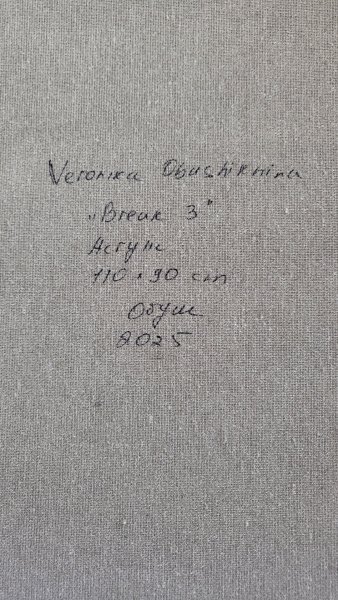 Veronika Obushiknina
„Break 3"
Acrylic
110 × 90 cm
Обуш
2025